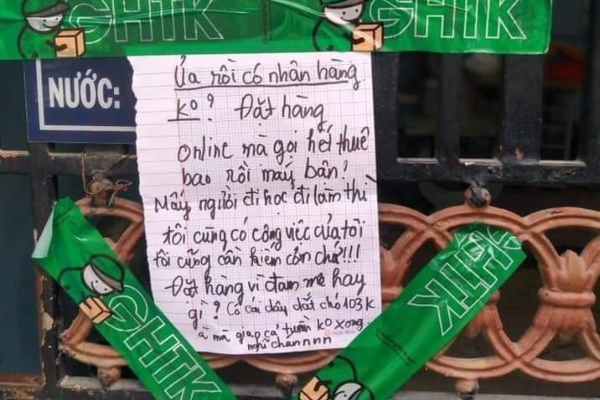 GHTK
GHTK
NƯỚC:
Ủa rồi có nhân hàng
ko? Đặt hàng
online mà gọi hết thuê
bao rồi mấy bận!
Mấy người đi học đi làm thì
tôi cũng có công việc của tôi
tôi cũng cần kiếm cơm chứ!!!
Đặt hàng vì đam mê hay
gì? Có cái dây dắt chó 103K
à mà giao cả tuần ko xong
nghĩ channnn
GHTK
GHTK